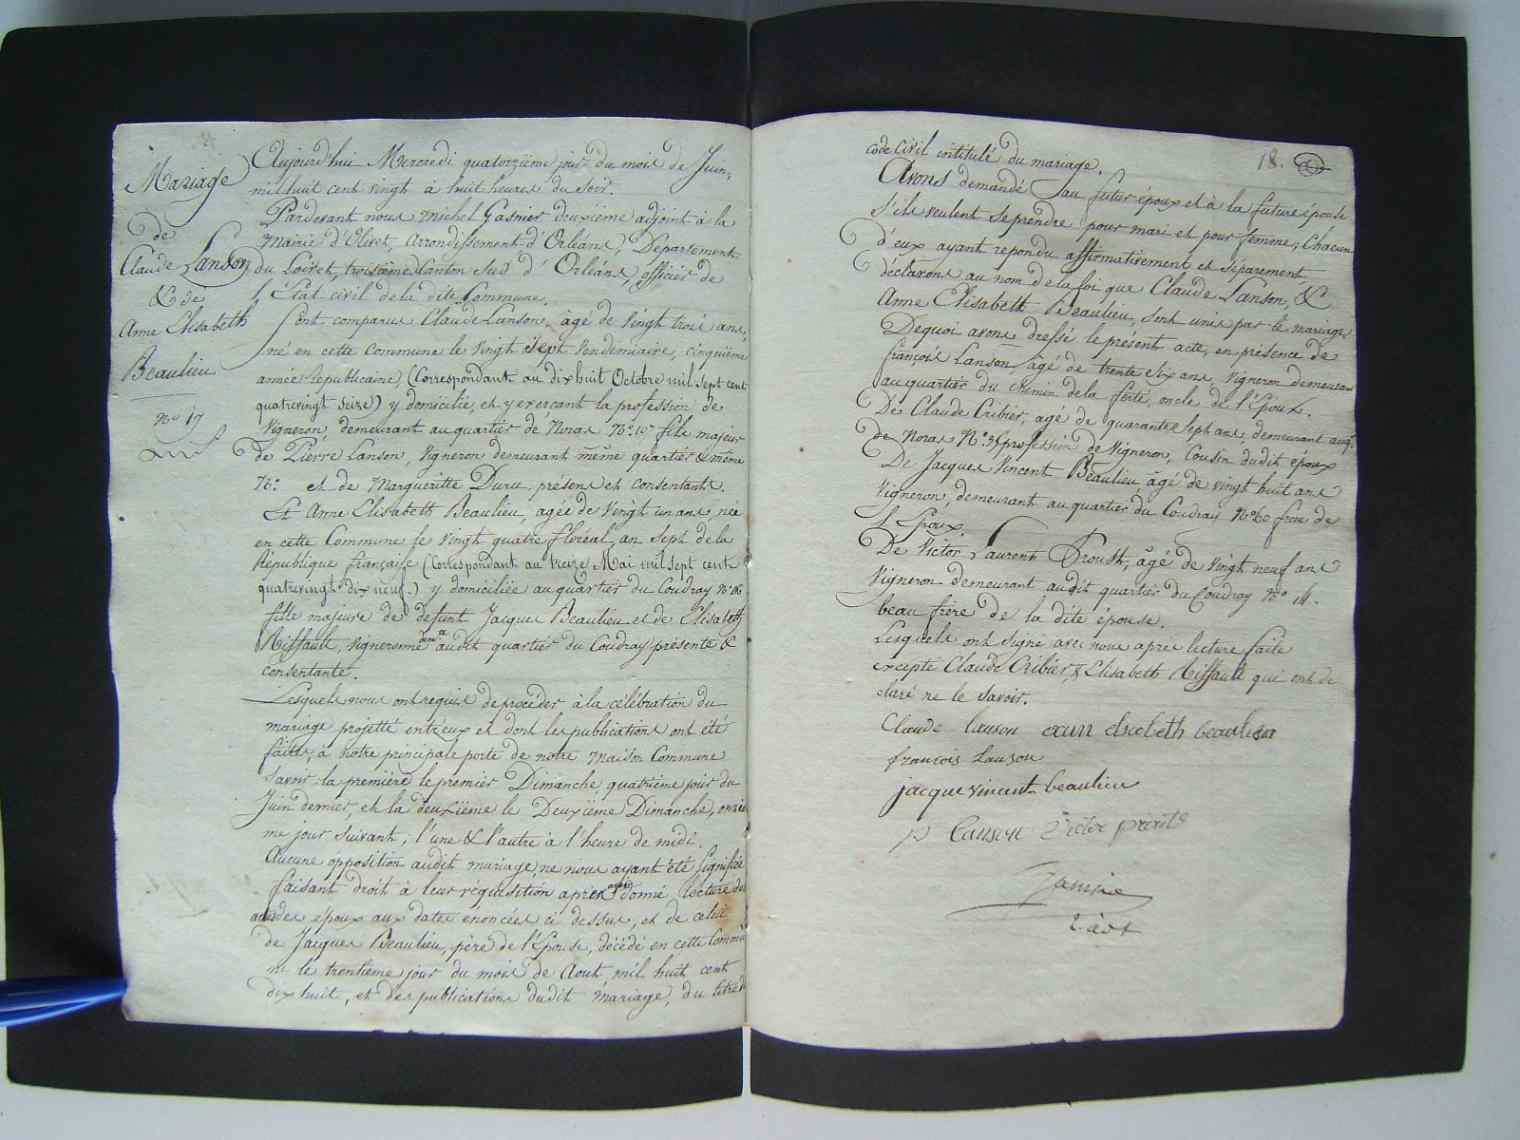 Mariage
de
Claude Lanson
& de
Anne Elisabeth
Beaulieu
No 17
Aujourd'hui Mercredi quatorzième jour du mois de Juin,
mil huit cent vingt à huit heures du soir.
Pardevant nous Michel Gasnier deuxième adjoint à la
Mairie d'Olivet, Arrondissement d'Orléans, Departement
du Loiret, troisième Canton Sud d'Orléans, officier de
l'État civil de la dite Commune.
Sont comparus Claude Lanson, âgé de vingt trois ans,
né en cette Commune le vingt sept Vendemiaire, cinquième
année républicaine, (Correspondant au dix huit Octobre mil sept cent
quatrevingt seize) y domicilié, et y exerçant la profession de
Vigneron, demeurant au quartier de Noras No 10 fils majeur
de Pierre Lanson, Vigneron demeurant même quartier & même
No: et de Margueritte Duru présens et consentants.
Et Anne Elisabeth Beaulieu, agée de vingt un ans née
en cette Commune le vingt quatre floréal, an sept de la
République française (Correspondant au treize Mai mil sept cent
quatrevingt dix neuf.) y domiciliée au quartier du Coudray No 60
fille majeure de defunt Jacques Beaulieu et de Elisabeth
Riffault, vigneronne demte audit quartier du Coudray présente &
consentante.
Lesquels nous ont requis de procéder à la célébration du
mariage projetté entr'eux et dont les publications ont été
faites, à notre principale porte de notre Maison Commune
Savoir la première le premier Dimanche, quatrième jour du
Juin dernier, et la deuxième le Deuxième Dimanche, onziè
me jour suivant, l'une & l'autre à l'heure de midi.
Aucune opposition audit mariage, ne nous ayant été signifiée
faisant droit à leur réquisition après avoir donné lecture des
actes des époux aux dates enoncées ci dessus, et de celui
de Jacques Beaulieu, père de l'Epouse, décédé en cette Commu
ne le trentième jour du mois de Aout mil huit cent
dix huit, et des publications dudit Mariage, du titre du
18.
code civil intitulé du mariage.
Avons demandé au futur époux et à la future épouse
s'ils veulent se prendre pour mari et pour femme, Chacun
d'eux ayant repondu affirmativement et séparement,
déclarons au nom de la foi que Claude Lanson, &
Anne Elisabeth Beaulieu, sont unis par le mariage
Dequoi avons dressé le présent acte, en présence de
françois Lanson, âgé de trente six ans, Vigneron demeurant
au quartier du Chemin de la ferté, oncle de l'Epoux.
De Claude Cribier, agé de quarante sept ans, demeurant au q.
de Noras No 35 profession de Vigneron, Cousin dudit époux
De Jacques Vincent Beaulieu, âgé de vingt huit ans
Vigneron, demeurant au quartier du Coudray No 60 frere de
l'Epoux.
De Victor Laurent Proust, âgé de vingt neuf ans
Vigneron demeurant audit quartier du Coudray No 14.
beau frère de la dite épouse.
Lesquels ont signé avec nous après lecture faite
excepté Claude Cribier, & Elisabeth Riffault qui ont de
claré ne le savoir.
Claude lanson Elisabeth beaulieu
françois Lanson
jacque vincent beaulieu
p Lanson Victor